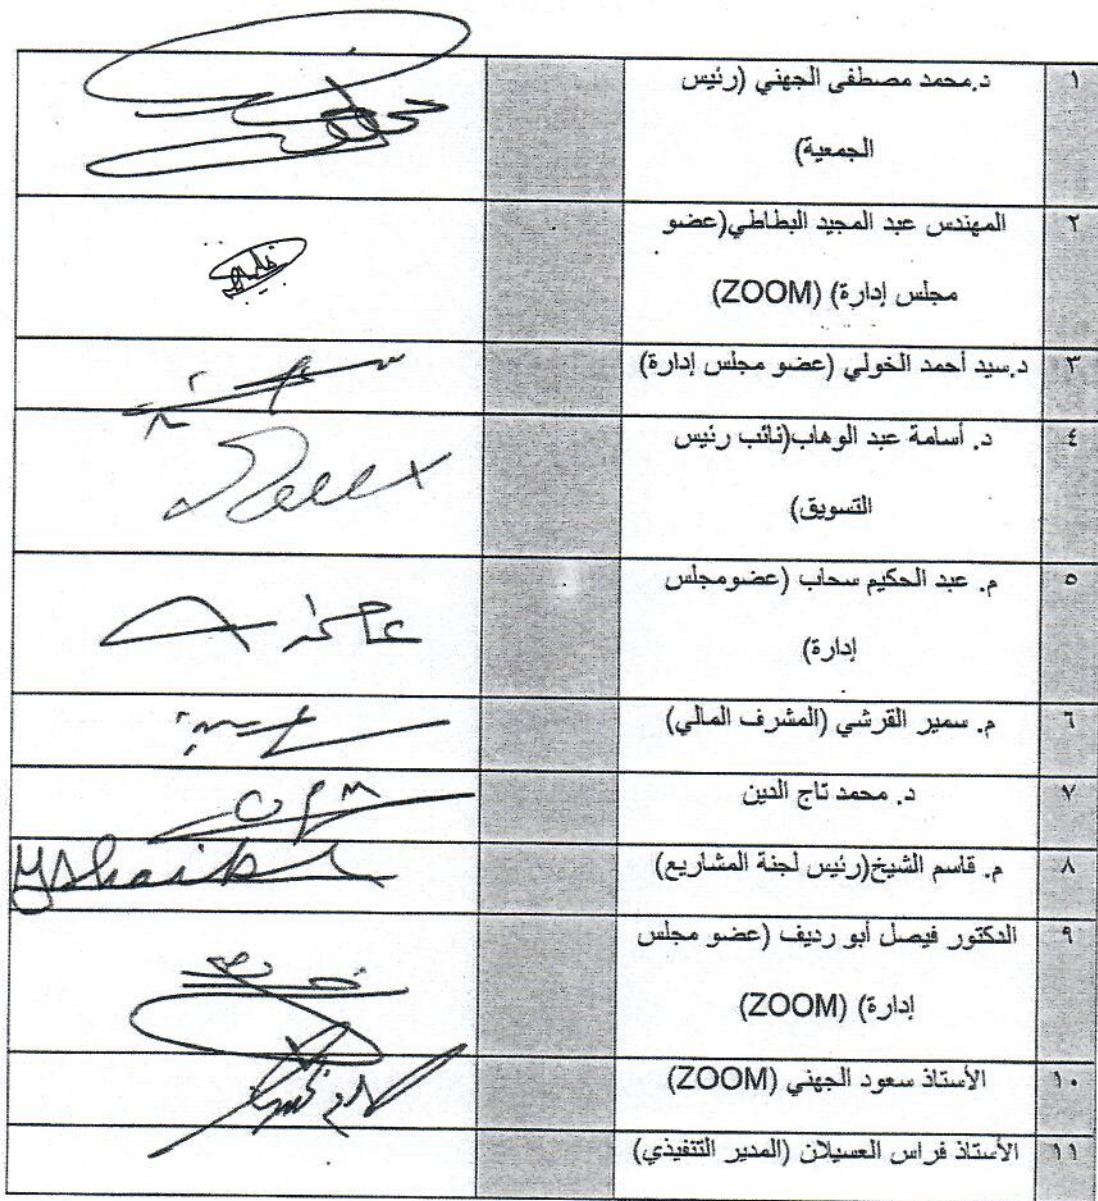 ١
د.محمد مصطفى الجهني (رئيس
الجمعية)
٢
المهندس عبد المجيد البطاطي(عضو
مجلس إدارة) (ZOOM)
٣
د.سيد أحمد الخولي (عضو مجلس إدارة)
٤
د. أسامة عبد الوهاب(نائب رئيس
التسويق)
٥
م. عبد الحكيم سحاب (عضومجلس
إدارة)
٦
م. سمير القرشي (المشرف المالي)
٧
د. محمد تاج الدين
٨
م. قاسم الشيخ(رئيس لجنة المشاريع)
٩
الدكتور فيصل أبو رديف (عضو مجلس
إدارة) (ZOOM)
١٠
الأستاذ سعود الجهني (ZOOM)
١١
الأستاذ فراس العسيلان (المدير التنفيذي)